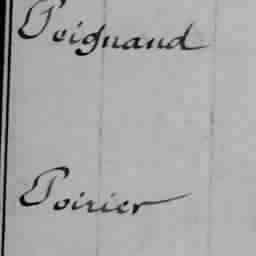 Poignand
Poirier